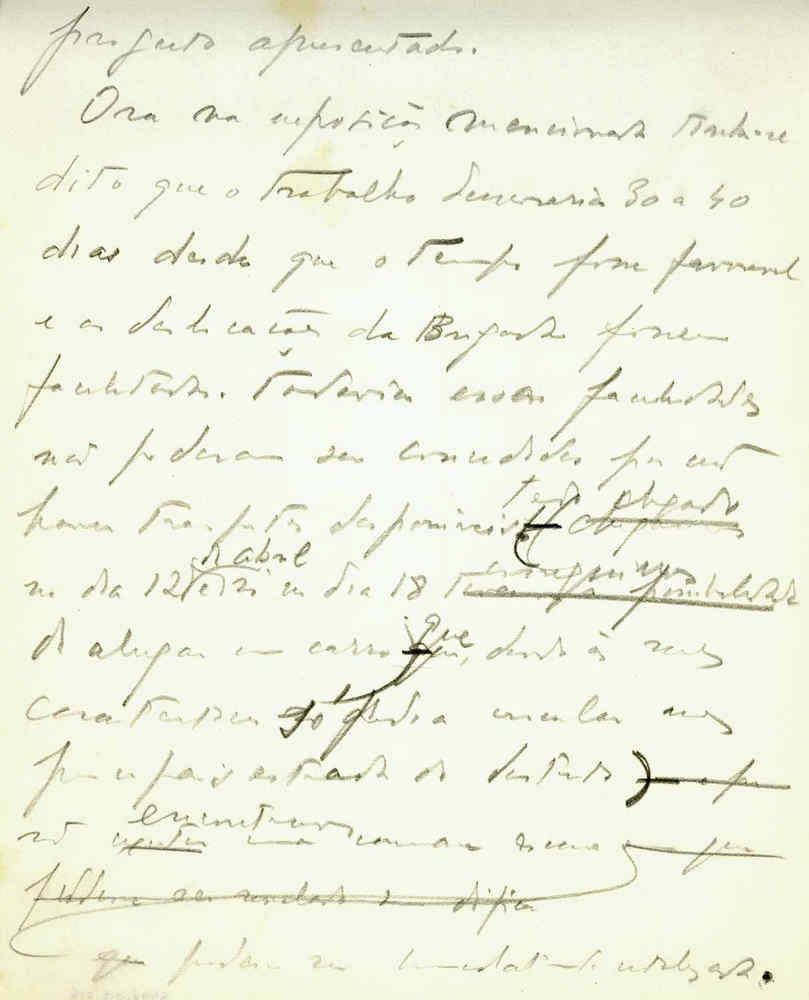 projecto apresentado.
Ora na exposição mencionada tinha-se
dito que o trabalho demoraria 30 a 40
dias desde que o tempo fosse favoravel
e as deslocações da Brigada fossem
facilitadas. Todavia essas facilidades
não poderam ser concedidas por não
haver transportes disponiveis
tendo chegado
no dia 12 de abril em dia 18
conseguimos
de alugar um carro que, devido às suas
caracteristicas só podia circular nas
principais estradas do distrito
encontrar
não uma
podem ser
que podesse ser imediatamente utilizada.